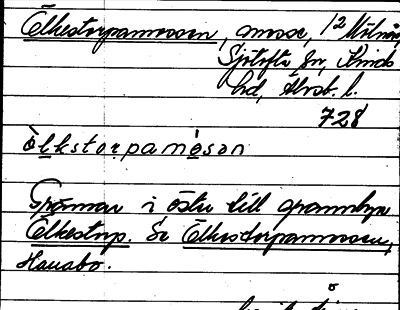 Ölkestorpamossen, mosse, 1/2 Mölnarp,
Sjötofta sn, Kinds
hd, Älvsb. l.
728
ò̀lkstorpamò̀san
Gränsar i öster till grannbyn
Ölkestorp. Se Ölkestorpamossen,
Hanabo.